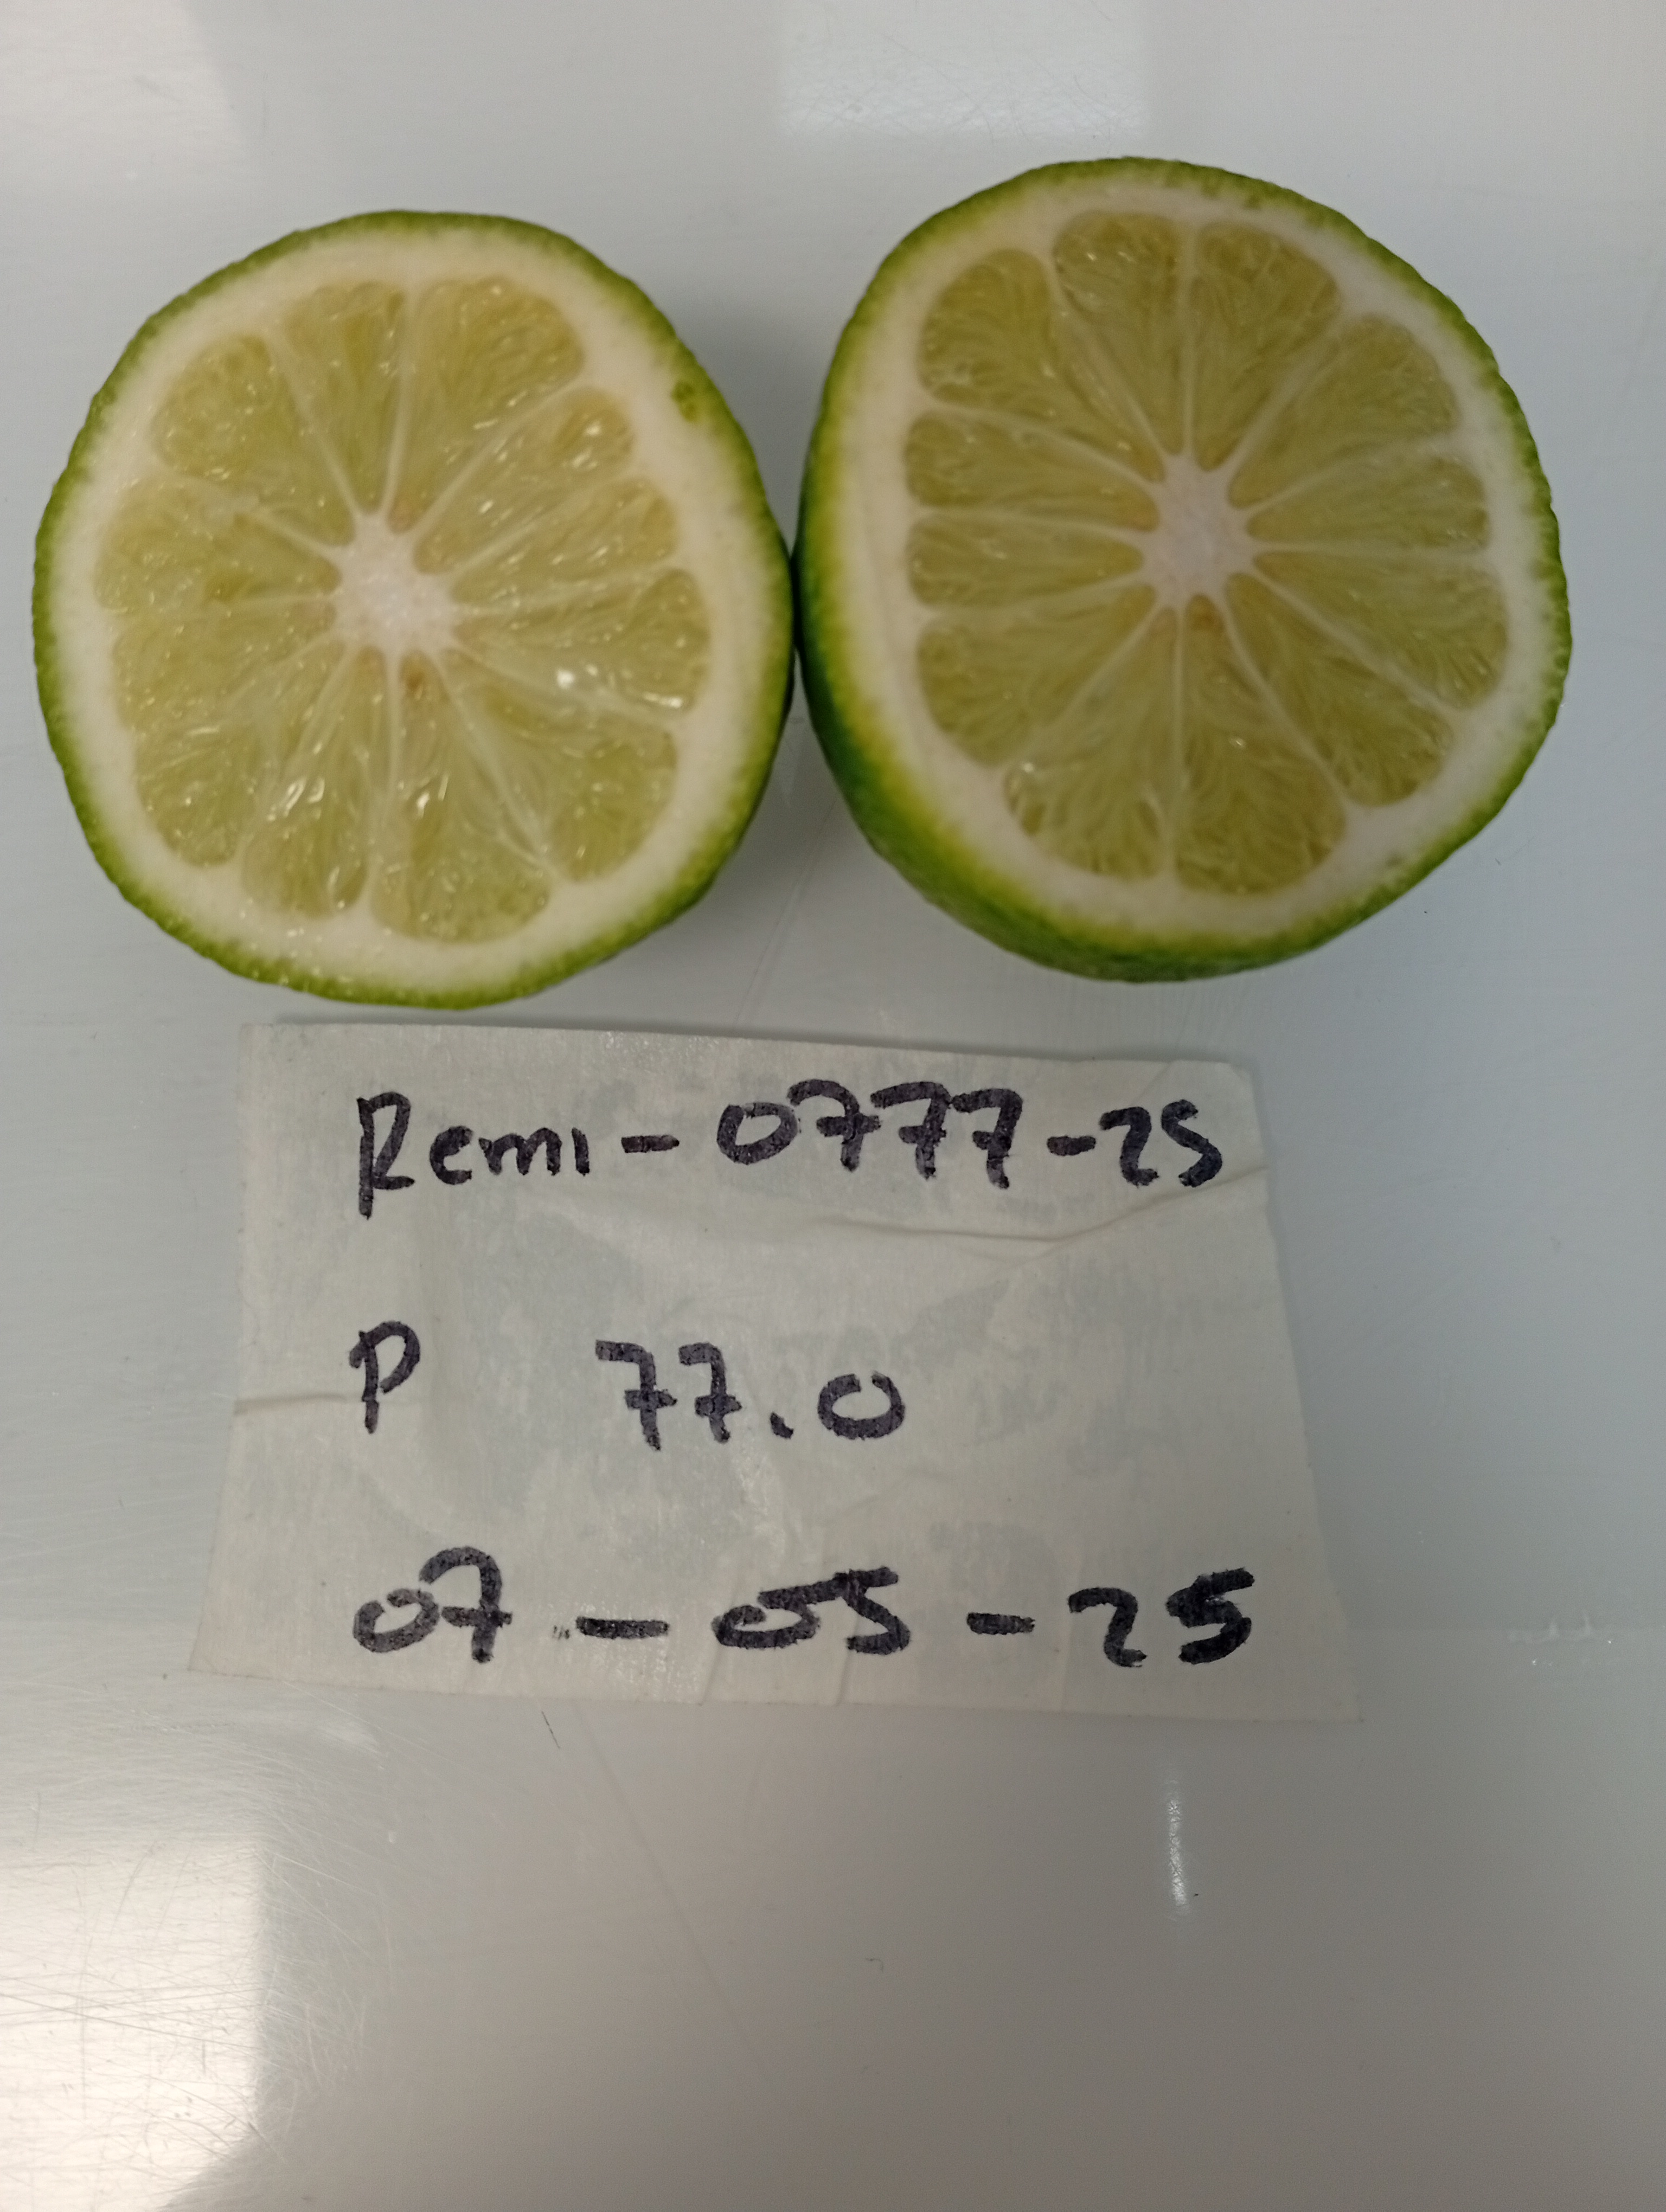 Remi-0777-25
P 77.0
07-05-25